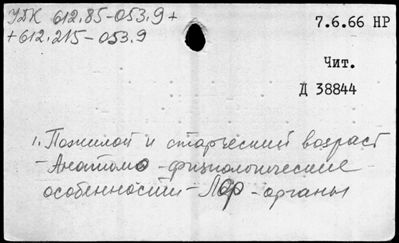 УДК 612.85-053.9 +
+ 612.215-053.9
7.6.66 НР
Чит.
Д 38844
1. Пожилой и старческий возраст
- Анатомо-физиологические
особенности - ЛОР-органы